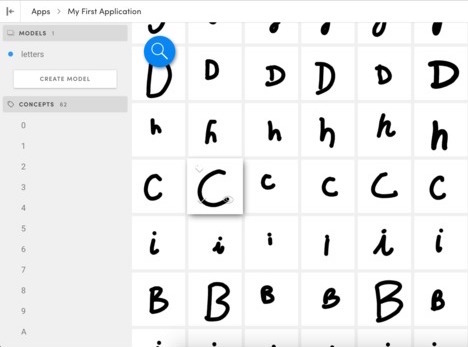 Apps > My First Application
MODELS 1
letters
CREATE MODEL
CONCEPTS 62
0
1
2
3
4
5
6
7
8
9
A
D D D D D D
h h h h h h
C C C C C C
i i i i i i
B B B B B B